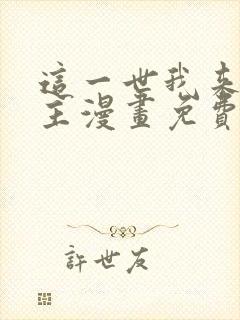 這一世我來
主漫畫免費
許世友